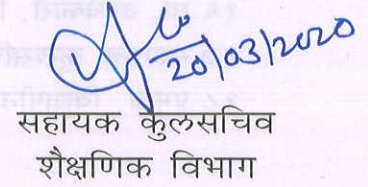 20/03/2020
सहायक कुलसचिव
शैक्षणिक विभाग